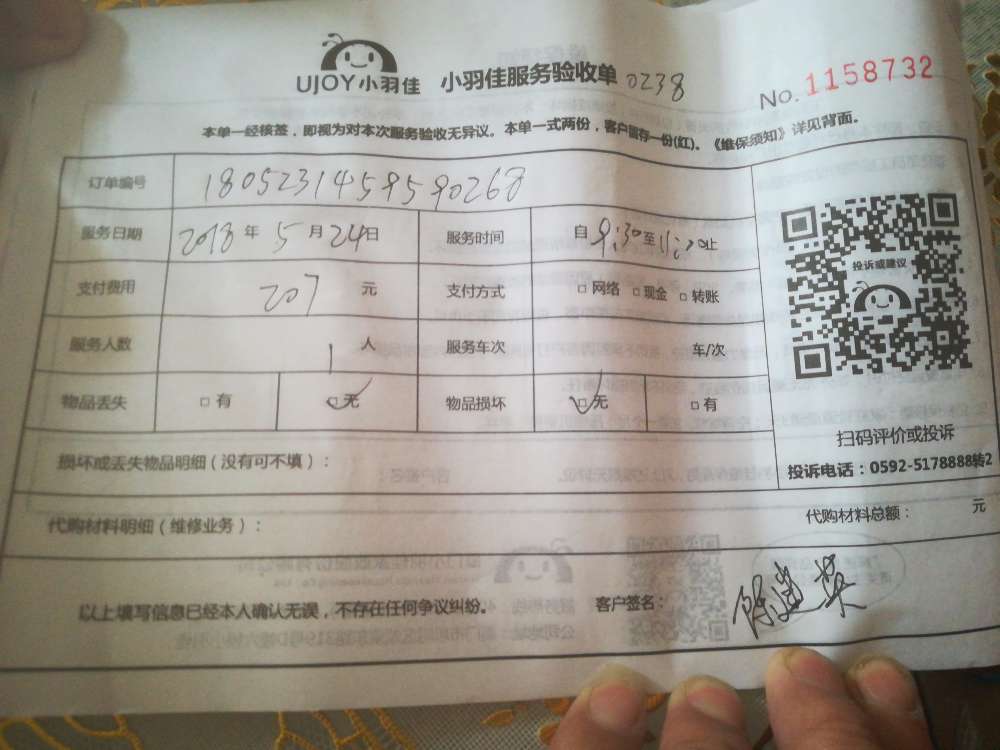 UJOY小羽佳 小羽佳服务验收单 0238
No. 1158732
本单一经核签，即视为对本次服务验收无异议。本单一式两份，客户留存一份(红)。《维保须知》详见背面。
订单编号 1805231459590268
服务日期 2018 年 5 月 24 日 服务时间 自 9:30 至 11:30 止
支付费用 207 元 支付方式 □ 网络 □ 现金 □ 转账
投诉或建议
服务人数 1 人 服务车次 车/次
物品丢失 □ 有 □ 无 物品损坏 □ 无 □ 有
扫码评价或投诉
投诉电话：0592-5178888转2
损坏或丢失物品明细（没有可不填）：
代购材料明细（维修业务）： 代购材料总额： 元
以上填写信息已经本人确认无误，不存在任何争议纠纷。 客户签名：